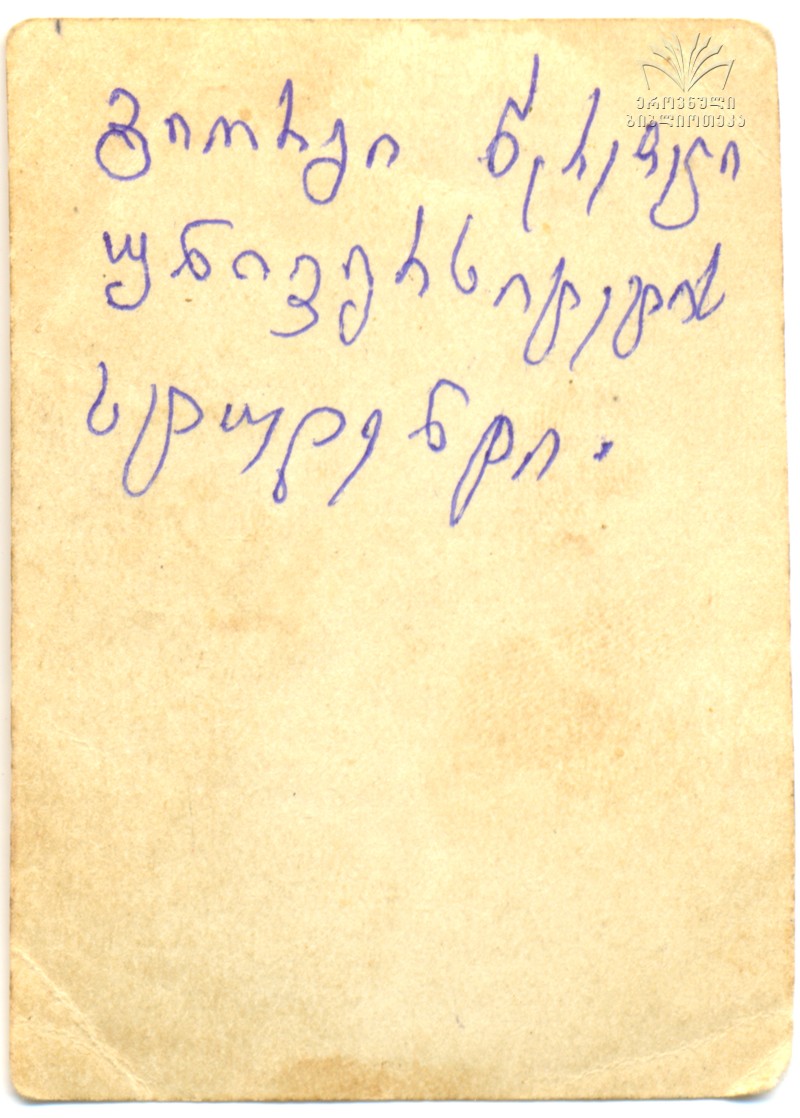 ეროვნული
ბიბლიოთეკა
გიორგი წერეთელი
უნივერსიტეტის
სტუდენტი.